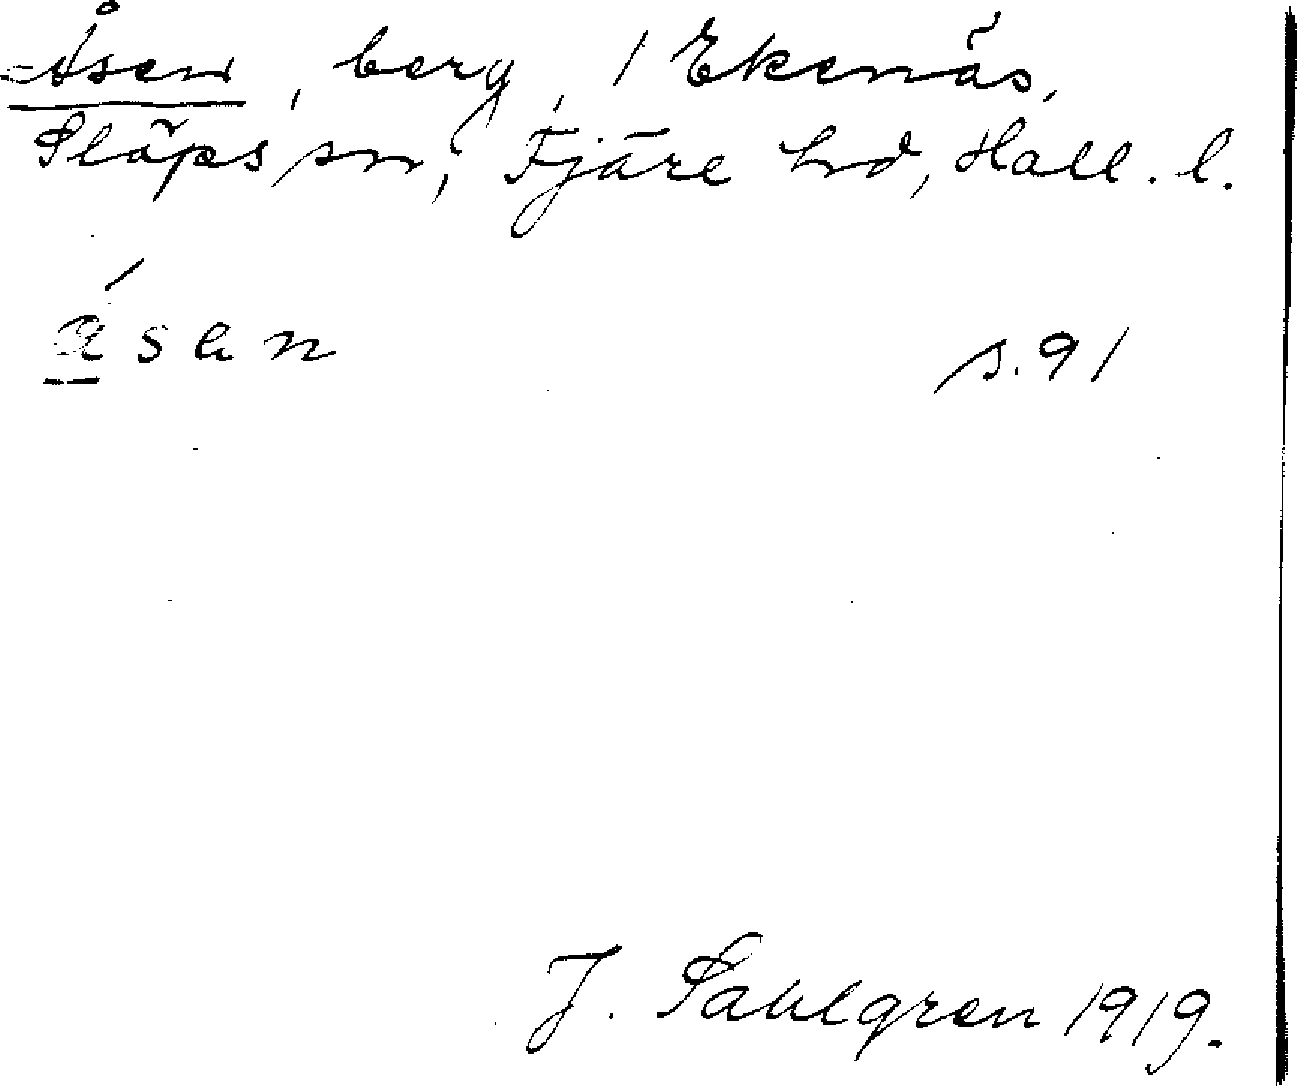 Åsen, berg, / Ekenäs,
Släps sn, Fjäre hd, Hall. l.
ásan s. 91
J. Sahlgren 1919.